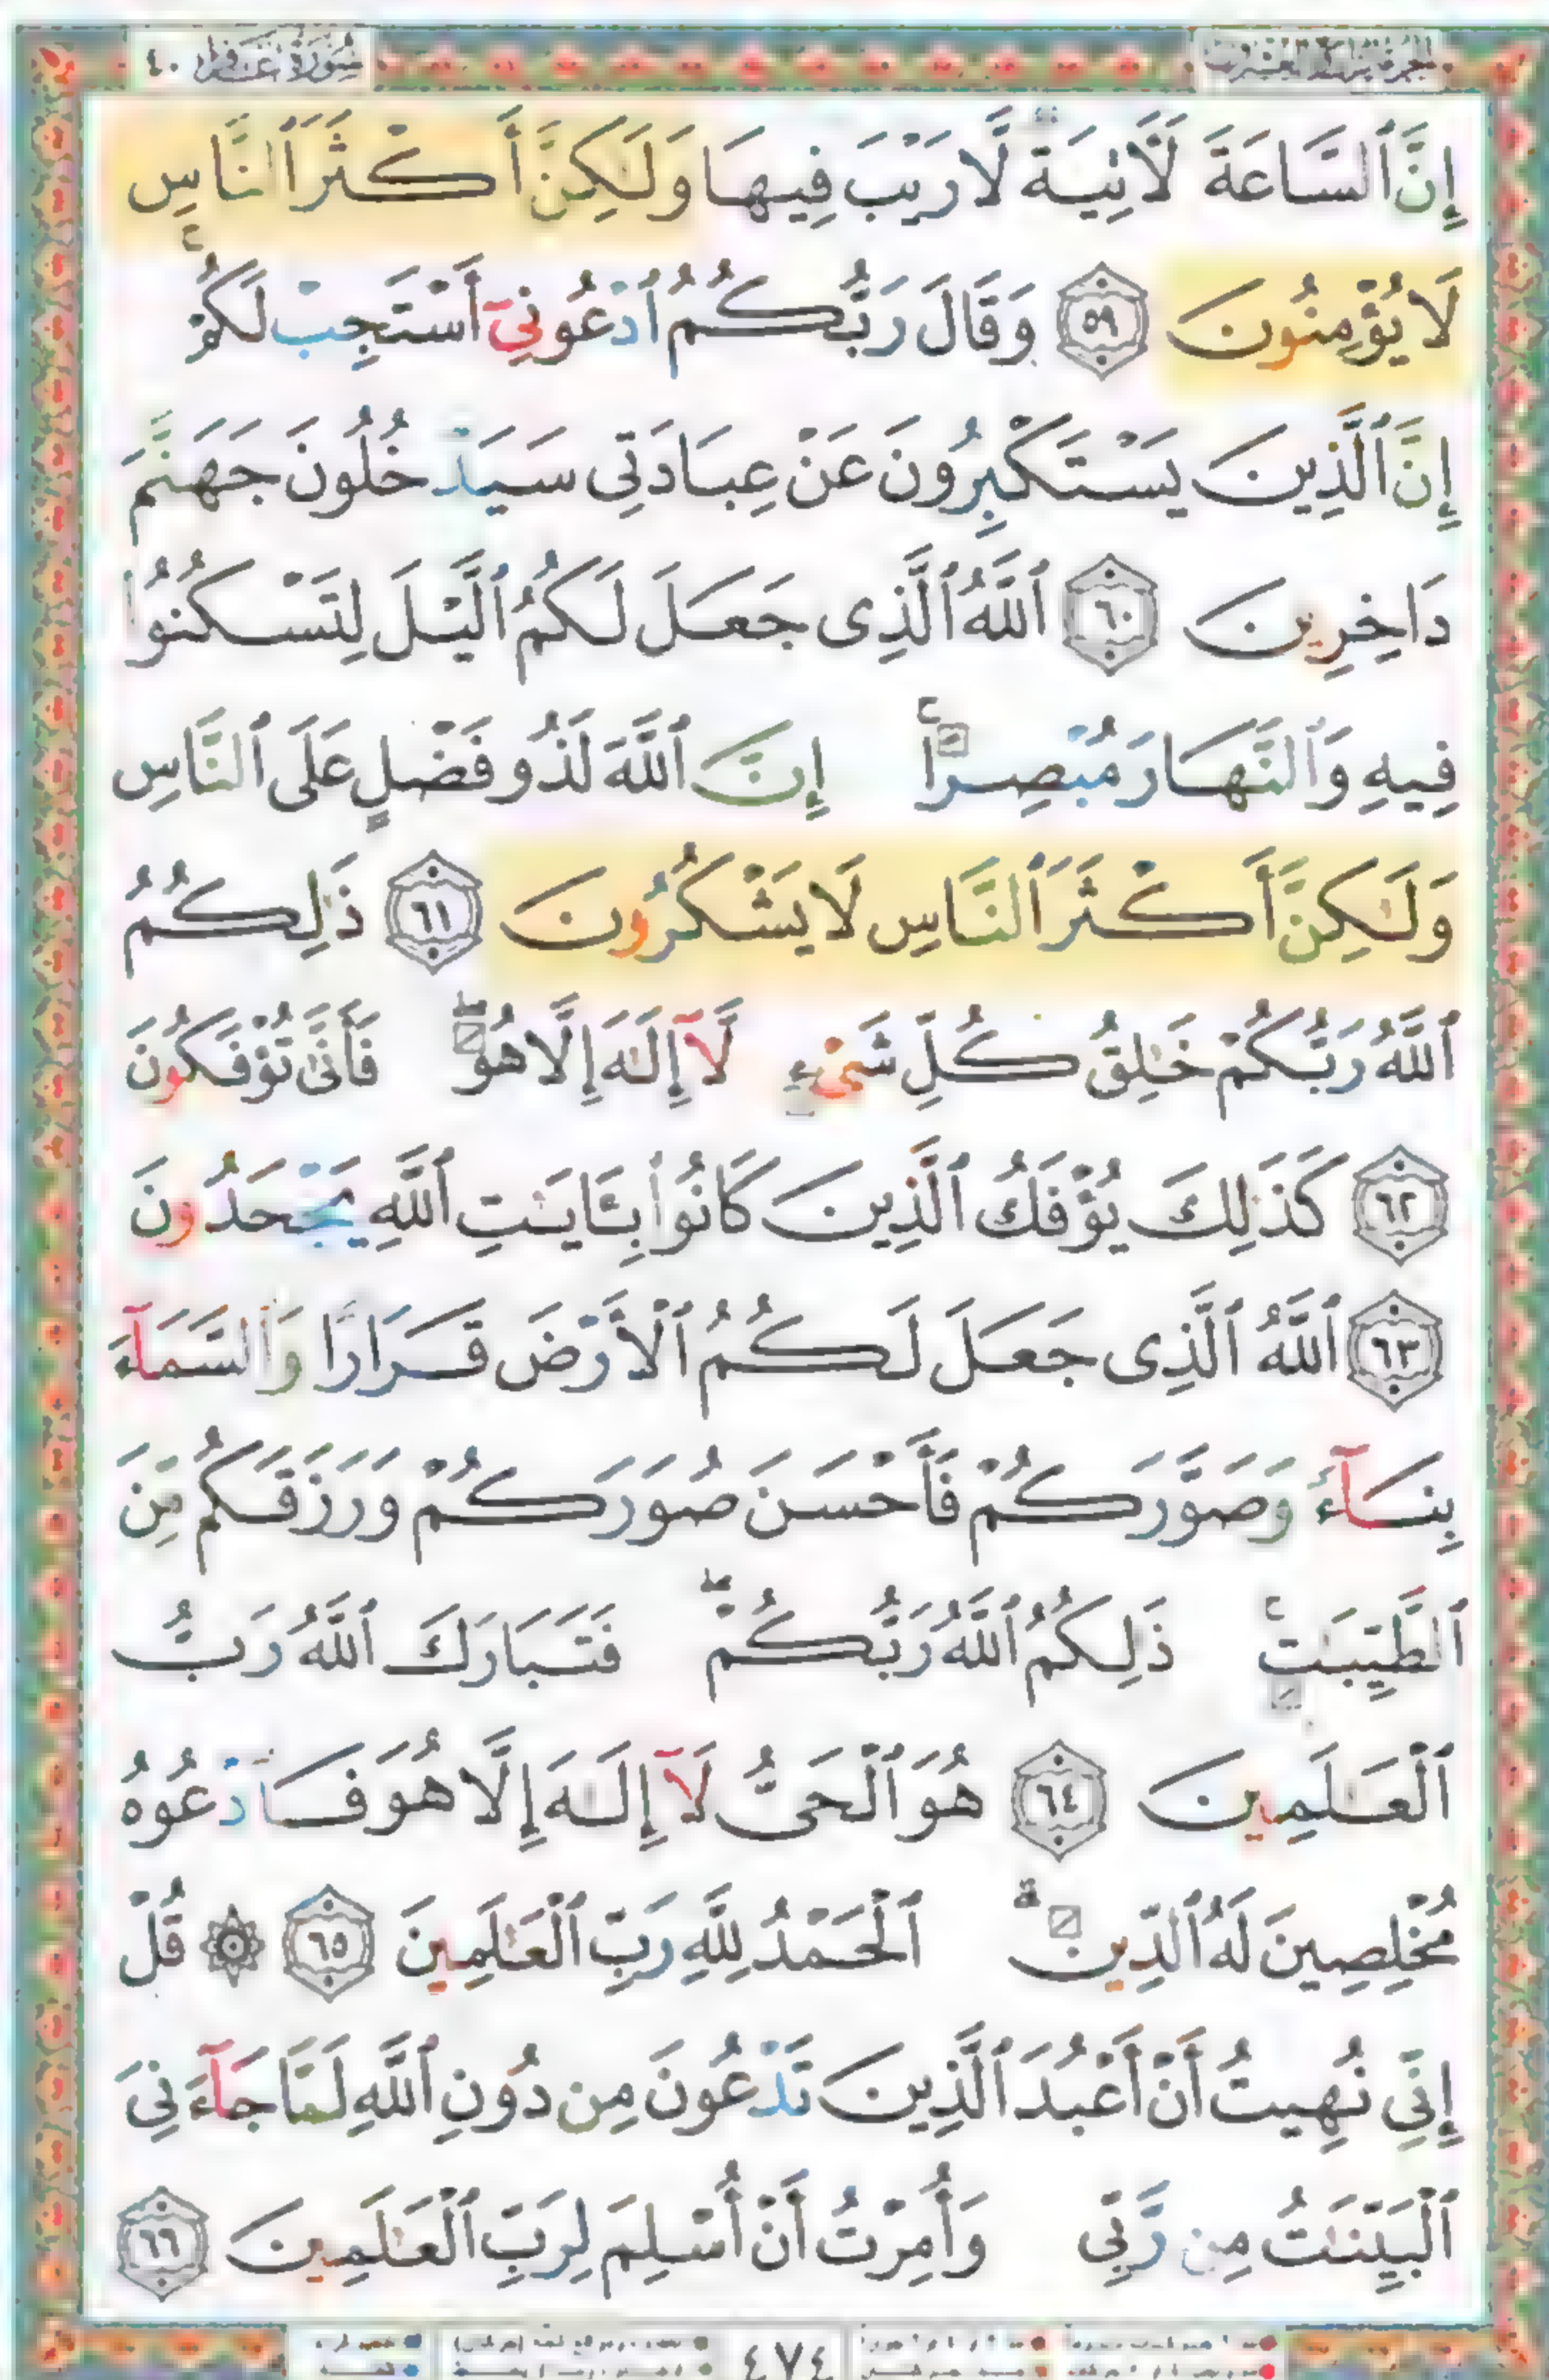 سُورَةُ غَافِرٍ ٤٠
إِنَّ ٱلسَّاعَةَ لَأٓتِيَةٌ لَّا رَيْبَ فِيهَا وَلَٰكِنَّ أَكْثَرَ ٱلنَّاسِ
لَا يُؤْمِنُونَ ٥٩ وَقَالَ رَبُّكُمُ ٱدْعُونِىٓ أَسْتَجِبْ لَكُمْ ۚ
إِنَّ ٱلَّذِينَ يَسْتَكْبِرُونَ عَنْ عِبَادَتِى سَيَدْخُلُونَ جَهَنَّمَ
دَاخِرِينَ ٦٠ ٱللَّهُ ٱلَّذِى جَعَلَ لَكُمُ ٱلَّيْلَ لِتَسْكُنُوا۟
فِيهِ وَٱلنَّهَارَ مُبْصِرًا ۚ إِنَّ ٱللَّهَ لَذُو فَضْلٍ عَلَى ٱلنَّاسِ
وَلَٰكِنَّ أَكْثَرَ ٱلنَّاسِ لَا يَشْكُرُونَ ٦١ ذَٰلِكُمُ
ٱللَّهُ رَبُّكُمْ خَٰلِقُ كُلِّ شَىْءٍ لَّآ إِلَٰهَ إِلَّا هُوَ ۖ فَأَنَّىٰ تُؤْفَكُونَ
٦٢ كَذَٰلِكَ يُؤْفَكُ ٱلَّذِينَ كَانُوا۟ بِـَٔايَٰتِ ٱللَّهِ يَجْحَدُونَ
٦٣ ٱللَّهُ ٱلَّذِى جَعَلَ لَكُمُ ٱلْأَرْضَ قَرَارًا وَٱلسَّمَآءَ
بِنَآءً وَصَوَّرَكُمْ فَأَحْسَنَ صُوَرَكُمْ وَرَزَقَكُم مِّنَ
ٱلطَّيِّبَٰتِ ۚ ذَٰلِكُمُ ٱللَّهُ رَبُّكُمْ ۖ فَتَبَارَكَ ٱللَّهُ رَبُّ
ٱلْعَٰلَمِينَ ٦٤ هُوَ ٱلْحَىُّ لَآ إِلَٰهَ إِلَّا هُوَ فَٱدْعُوهُ
مُخْلِصِينَ لَهُ ٱلدِّينَ ۗ ٱلْحَمْدُ لِلَّهِ رَبِّ ٱلْعَٰلَمِينَ ٦٥ ۞ قُلْ
إِنِّى نُهِيتُ أَنْ أَعْبُدَ ٱلَّذِينَ تَدْعُونَ مِن دُونِ ٱللَّهِ لَمَّا جَآءَنِىَ
ٱلْبَيِّنَٰتُ مِن رَّبِّى وَأُمِرْتُ أَنْ أُسْلِمَ لِرَبِّ ٱلْعَٰلَمِينَ ٦٦
٤٧٤